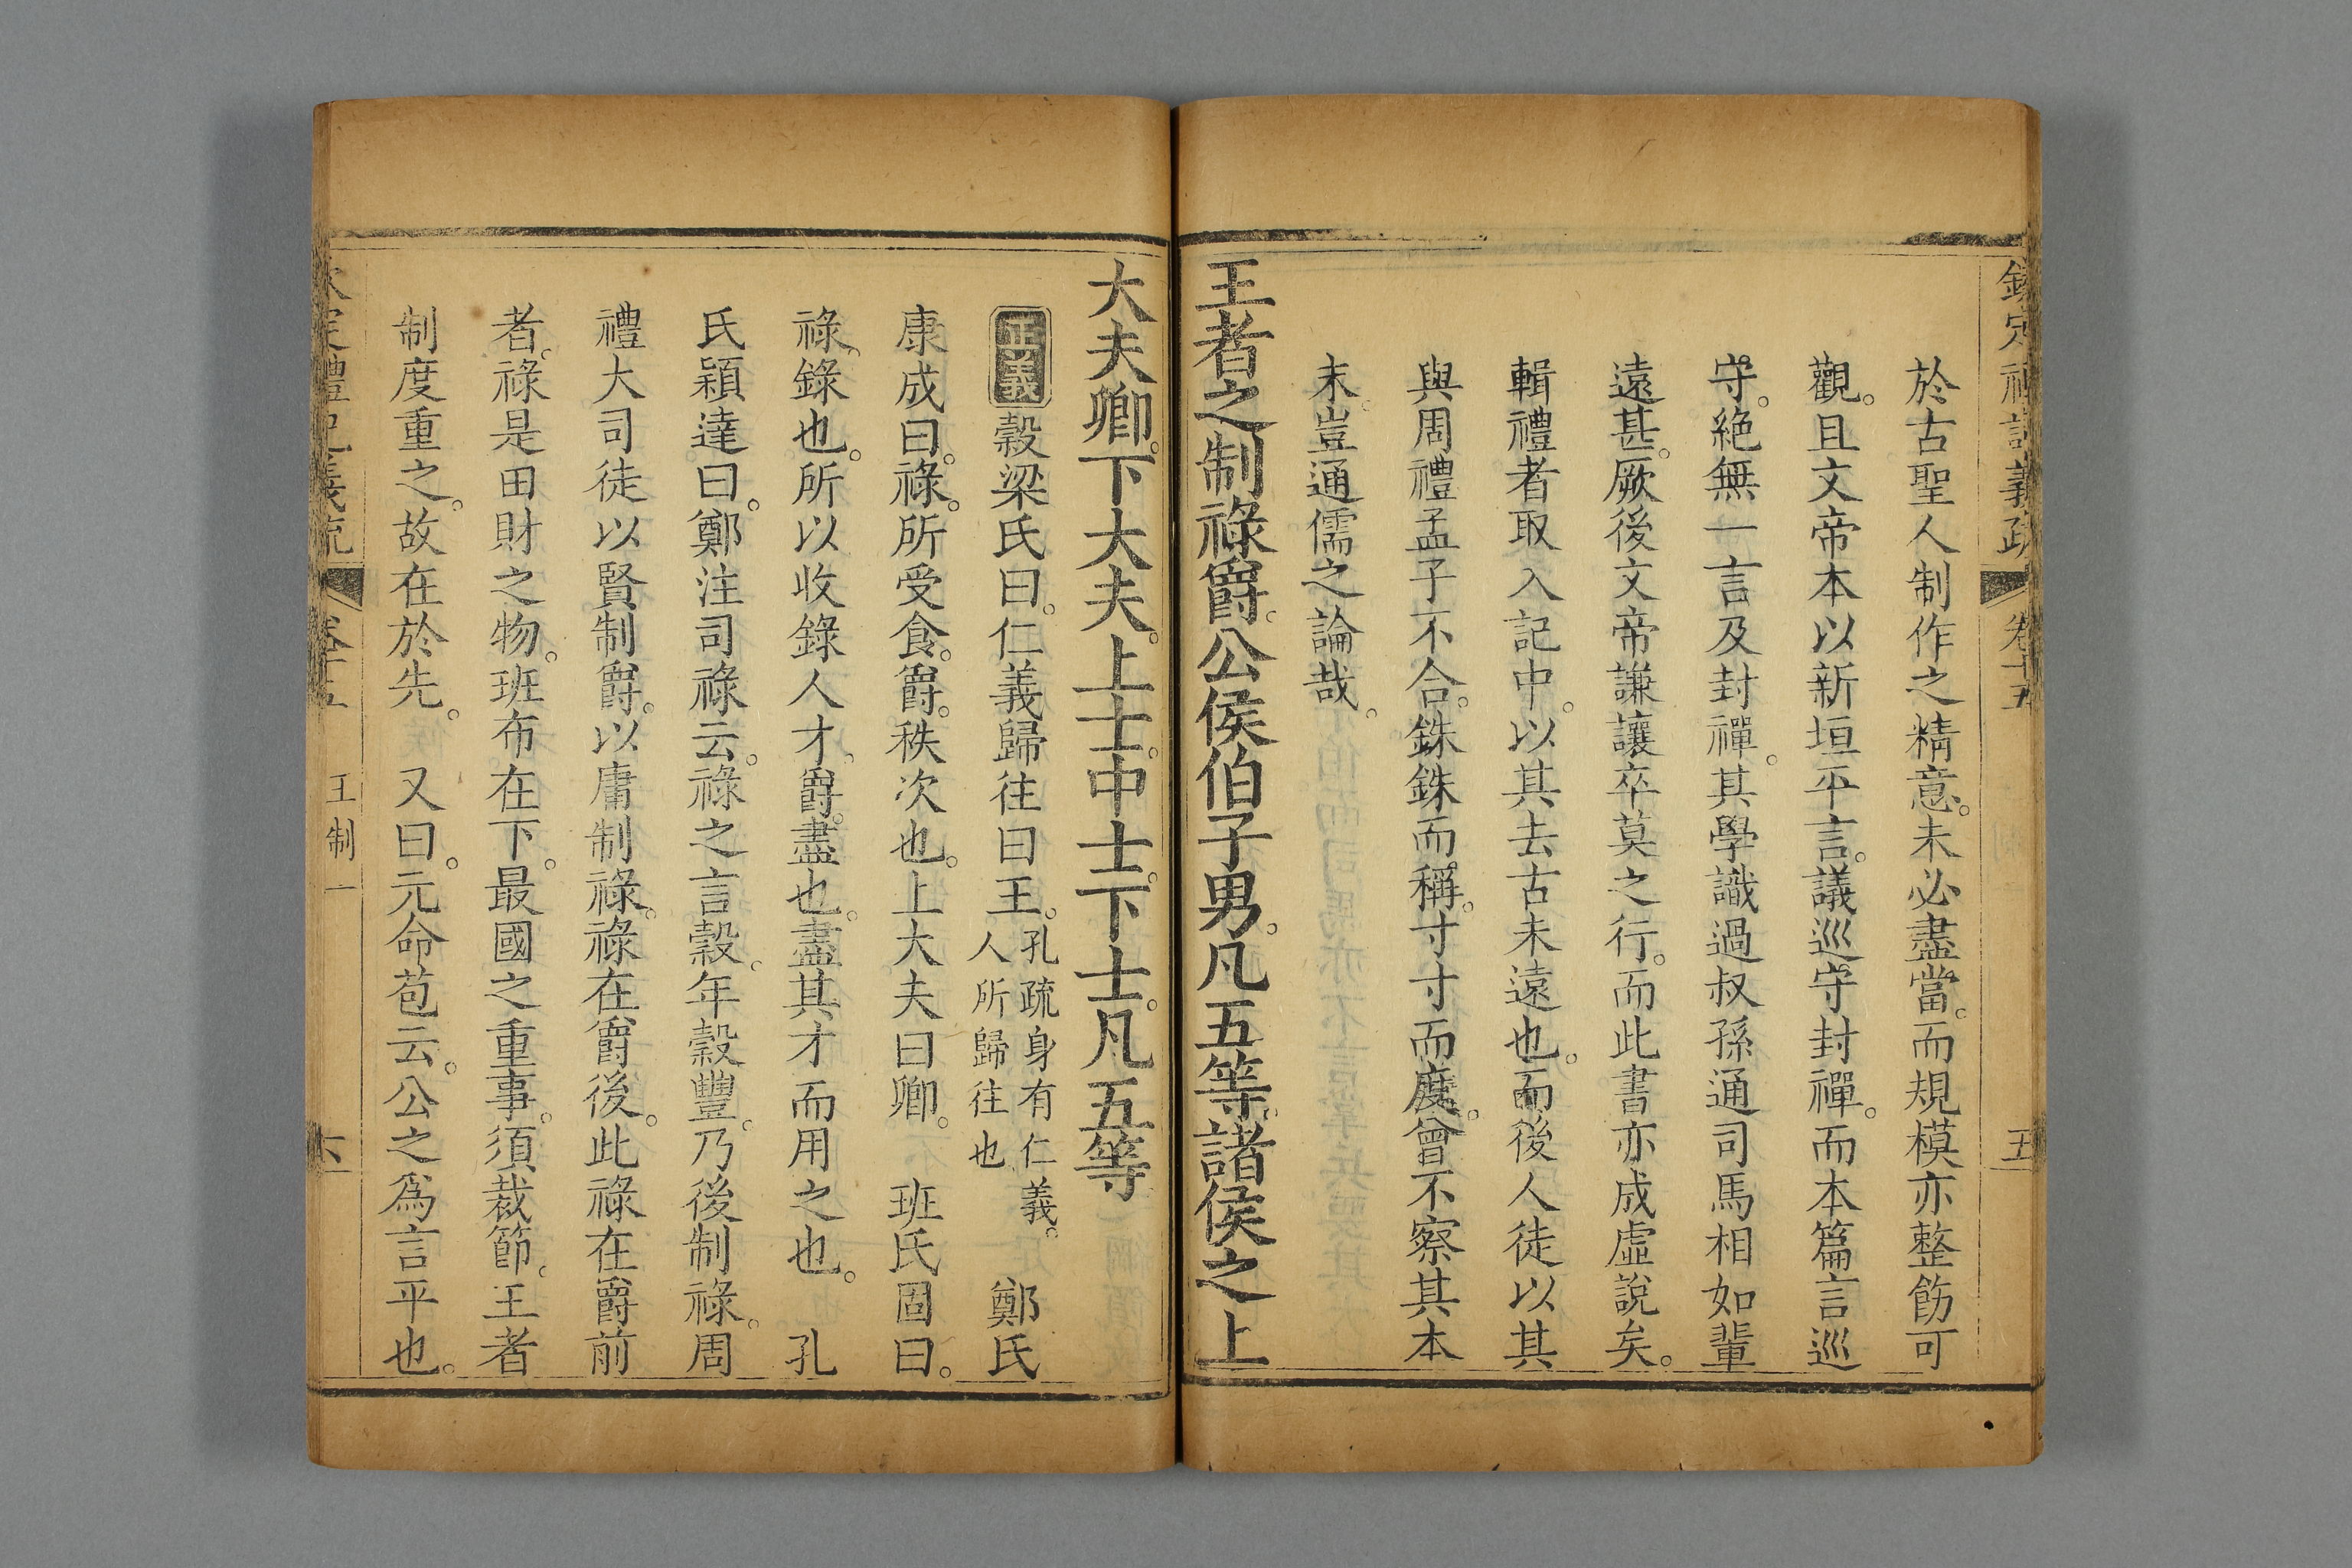 欽定禮記義疏 卷十五 五
於古聖人制作之精意。未必盡當。而規模亦整飭可
觀。且文帝本以新垣平言。議巡守封禪。而本篇言巡
守。絶無一言及封禪。其學識過叔孫通司馬相如輩
遠甚。厥後文帝謙讓。卒莫之行。而此書亦成虛說矣。
輯禮者取入記中。以其去古未遠也。而後人徒以其
與周禮孟子不合。銖銖而稱。寸寸而度。曾不察其本
末。豈通儒之論哉。
王者之制祿爵。公侯伯子男。凡五等。諸侯之上
大夫卿。下大夫。上士。中士。下士。凡五等
正義 穀梁氏曰。仁義歸往曰王。孔疏身有仁義。人所歸往也 鄭氏
康成曰。祿。所受食。爵。秩次也。上大夫曰卿。 班氏固曰。
祿。錄也。所以收錄人才。爵。盡也。盡其才而用之也。 孔
氏穎達曰。鄭注司祿云。祿之言穀。年穀豐。乃後制祿。周
禮大司徒以賢制爵。以庸制祿。祿在爵後。此祿在爵前
者。祿是田財之物。班布在下。最國之重事。須裁節。王者
制度重之。故在於先。 又曰。元命苞云。公之爲言平也。
欽定禮記義疏 卷十五 王制一 六